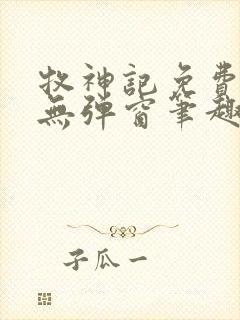 牧神記免費
無彈窗筆趣
子瓜一